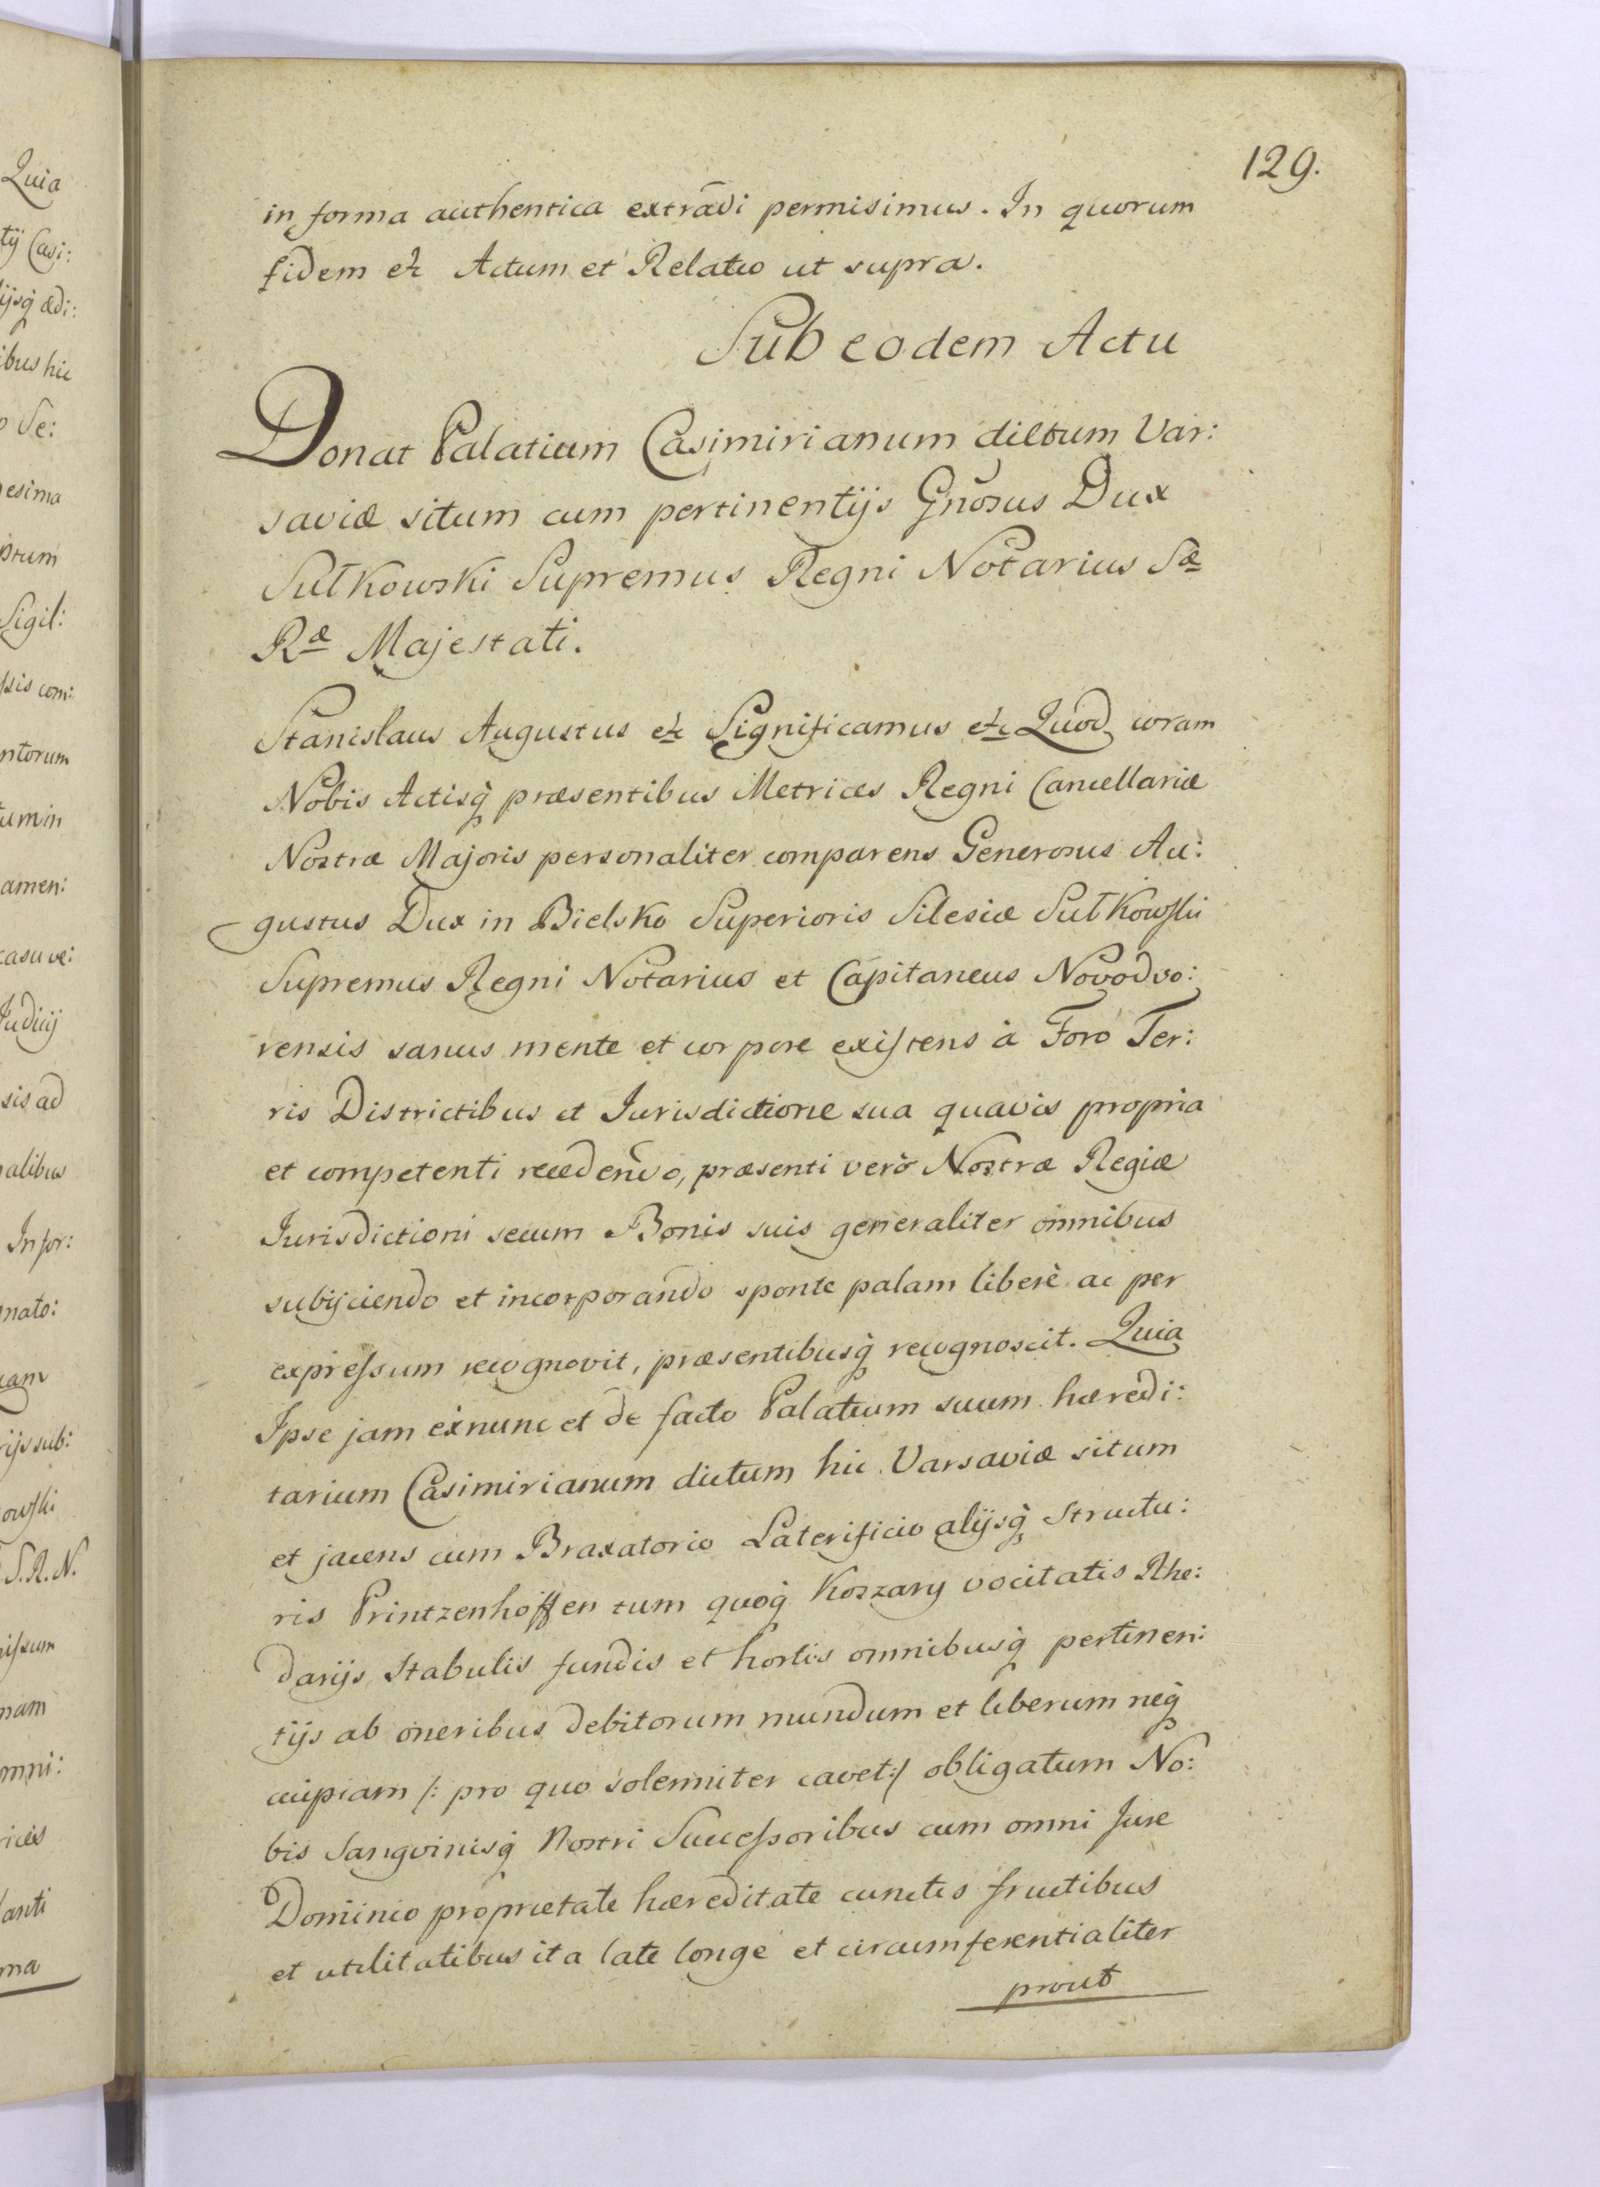 129.
in forma authentica extradi permisimus. In quorum
fidem etc Actum et Relatio ut supra.
Sub eodem Actu
Donat Palatium Casimirianum dictum Var:
saviæ situm cum pertinentijs Gnosus Dux
Sułkowski Supremus Regni Notarius Sæ
Ræ Majestati.
Stanislaus Augustus etc Significamus etc Quod coram
Nobis Actisq̀ præsentibus Metrices Regni Cancellariæ
Nostræ Majoris personaliter comparens Generosus Au:
gustus Dux in Bielsko Superioris Silesiæ Sułkowski
Supremus Regni Notarius et Capitaneus Novodvo:
rensis sanus mente et corpore existens à Foro Ter:
ris Districtibus et Jurisdictione sua quavis propria
et competenti recedendo, præsenti verò Nostræ Regiæ
Jurisdictioni secum Bonis suis generaliter omnibus
subijciendo et incorporando sponte palam liberè ac per
expressum recognovit, præsentibusq̀ recognoscit. Quia
Ipse jam exnunc et de facto Palatium suum hæredi:
tarium Casimirianum dictum hic Varsaviæ situm
et jacens cum Braxatorio Laterificio alijsq̀ Structu:
ris Printzenhoffen tum quoq̀ Koszary vocitatis Rhe:
darijs Stabulis fundis et hortis omnibusq̀ pertinen:
tijs ab oneribus debitorum mundum et liberum neq̀
cuipiam /: pro quo solenniter cavet :/ obligatum No:
bis Sangvinisq̀ Nostri Successoribus cum omni Jure
Dominio proprietate hæreditate cunctis fructibus
et utilitatibus ita late longe et circumferentialiter
prout
Quia
tij Casi:
ijsq̀ ædi:
ibus hic
Se:
esima
Sigil:
ssis com:
ntorum
um in
amen:
casu ve:
Judicij
sis ad
alibus
Infor:
nato:
ijs sub:
owski
S.R.N.
nam
omni: